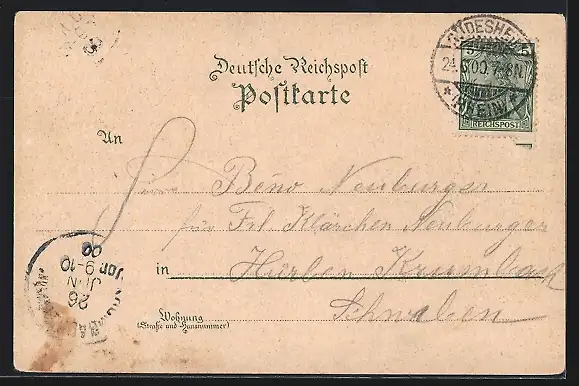 Deutsche Reichspost
Postkarte
RÜDESHEIM
24.6.00.7-8N
* (RHEIN) *
5
REICHSPOST
An
Beno Neuburger
für Frl Klärchen Neuburger
in Hürben Krumbach
Schwaben
Wohnung
(Straße und Hausnummer)
26
JUN
9-10
00